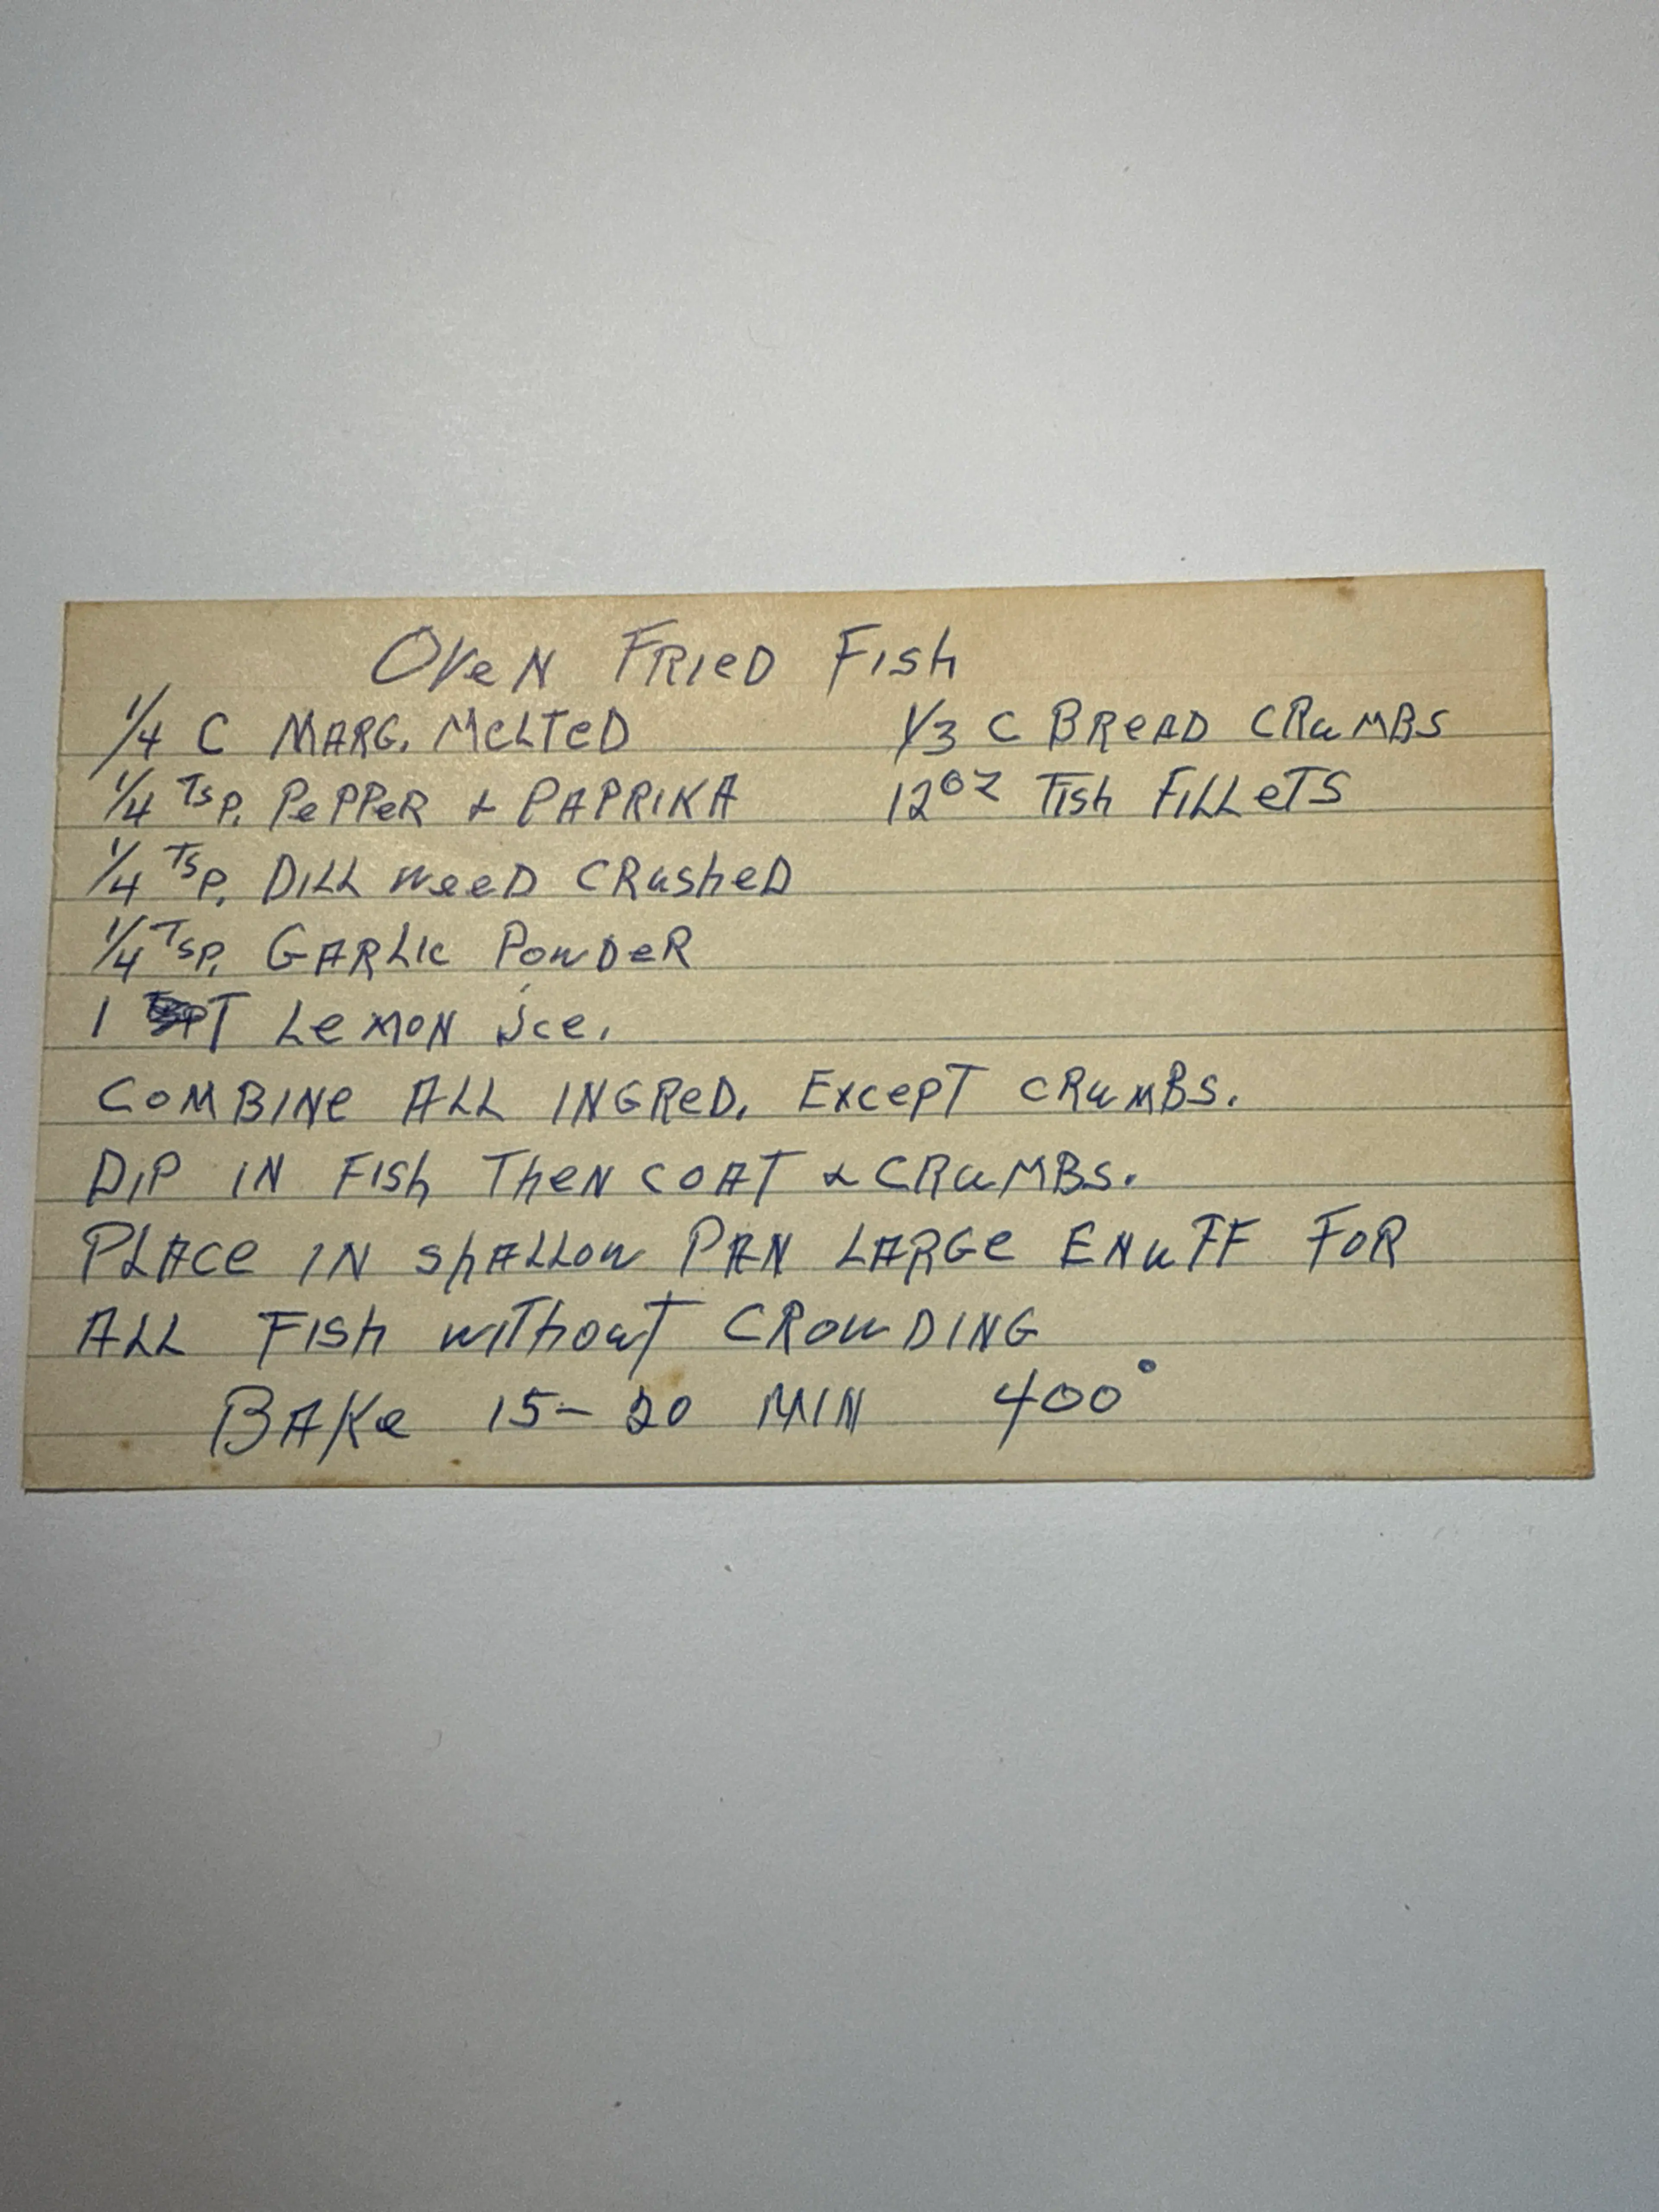 Oven Fried Fish
1/4 C Marg. Melted 1/3 C Bread Crumbs
1/4 Tsp. Pepper + Paprika 12oz Fish Fillets
1/4 Tsp. Dill Weed Crushed
1/4 Tsp. Garlic Powder
1 T Lemon Jce.
Combine All Ingred. Except Crumbs.
Dip in Fish Then Coat & Crumbs.
Place in Shallow Pan Large Enuff For
All Fish Without Crowding
Bake 15-20 Min 400°